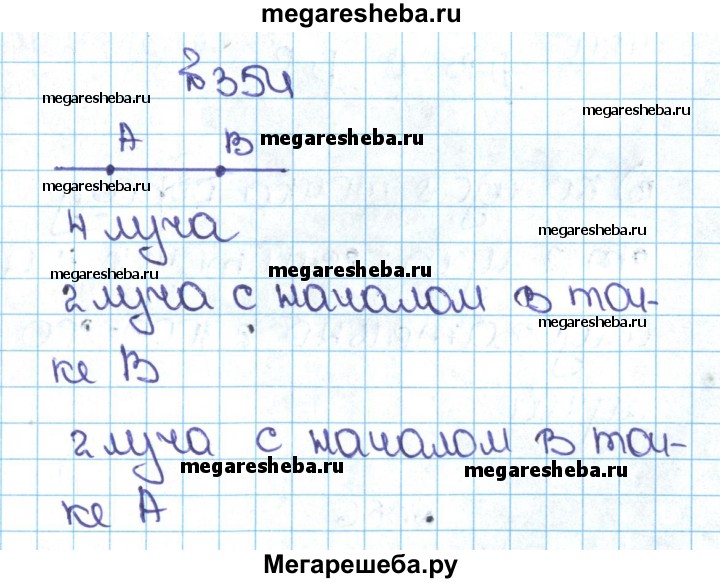 megaresheba.ru
№354
megaresheba.ru
megaresheba.ru
A B
megaresheba.ru
megaresheba.ru
4 луча
megaresheba.ru
megaresheba.ru
megaresheba.ru
2 луча с началом в точ-
megaresheba.ru
ке B
2 луча с началом в точ-
megaresheba.ru
megaresheba.ru
ке A
Мегарешеба.ру